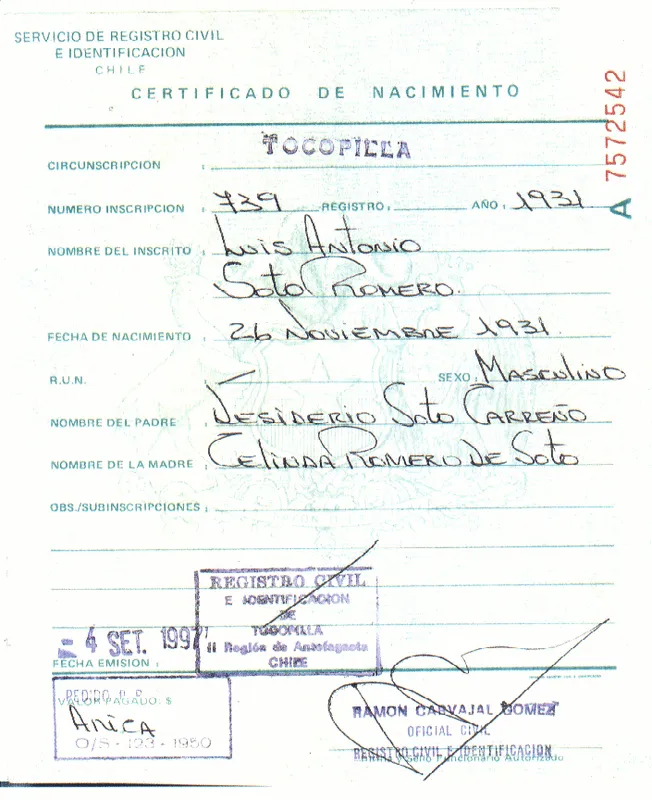 SERVICIO DE REGISTRO CIVIL
E IDENTIFICACION
CHILE
CERTIFICADO DE NACIMIENTO
A 7572542
TOCOPILLA
CIRCUNSCRIPCION :
NUMERO INSCRIPCION : 739 REGISTRO : AÑO : 1931
NOMBRE DEL INSCRITO : Luis Antonio
Soto Romero.
FECHA DE NACIMIENTO : 26 Noviembre 1931.
R.U.N. : — SEXO : Masculino
NOMBRE DEL PADRE : Desiderio Soto Carreño
NOMBRE DE LA MADRE : Celinda Romero De Soto
OBS./SUBINSCRIPCIONES :
REGISTRO CIVIL
E IDENTIFICACION
DE
TOCOPILLA
II Región de Antofagasta
CHILE
- 4 SET. 1997
FECHA EMISION :
PEDIDO
VALOR PAGADO: $
Arica
O/S - 123 - 1950
RAMON CARVAJAL GOMEZ
OFICIAL CIVIL
REGISTRO CIVIL E IDENTIFICACION
Firma y Sello Funcionario Autorizado